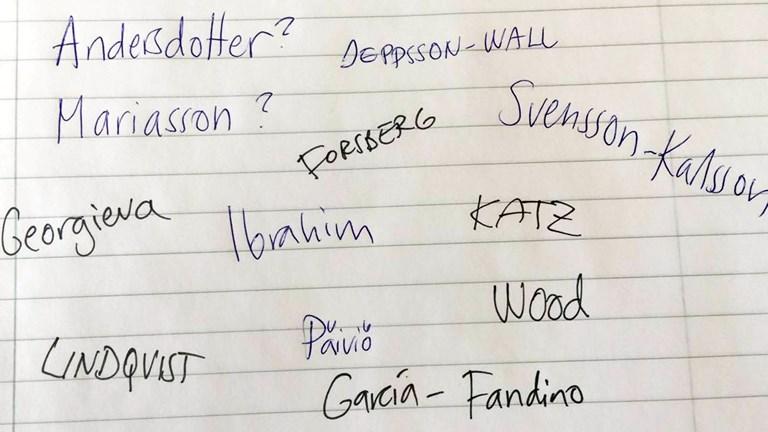 Andersdotter?
DEPPSSON-WALL
Mariasson ?
FORSBERG
Svensson-Kalsson
Georgieva
Ibrahim
KATZ
Wood
Päiviö
LINDQVIST
García - Fandino